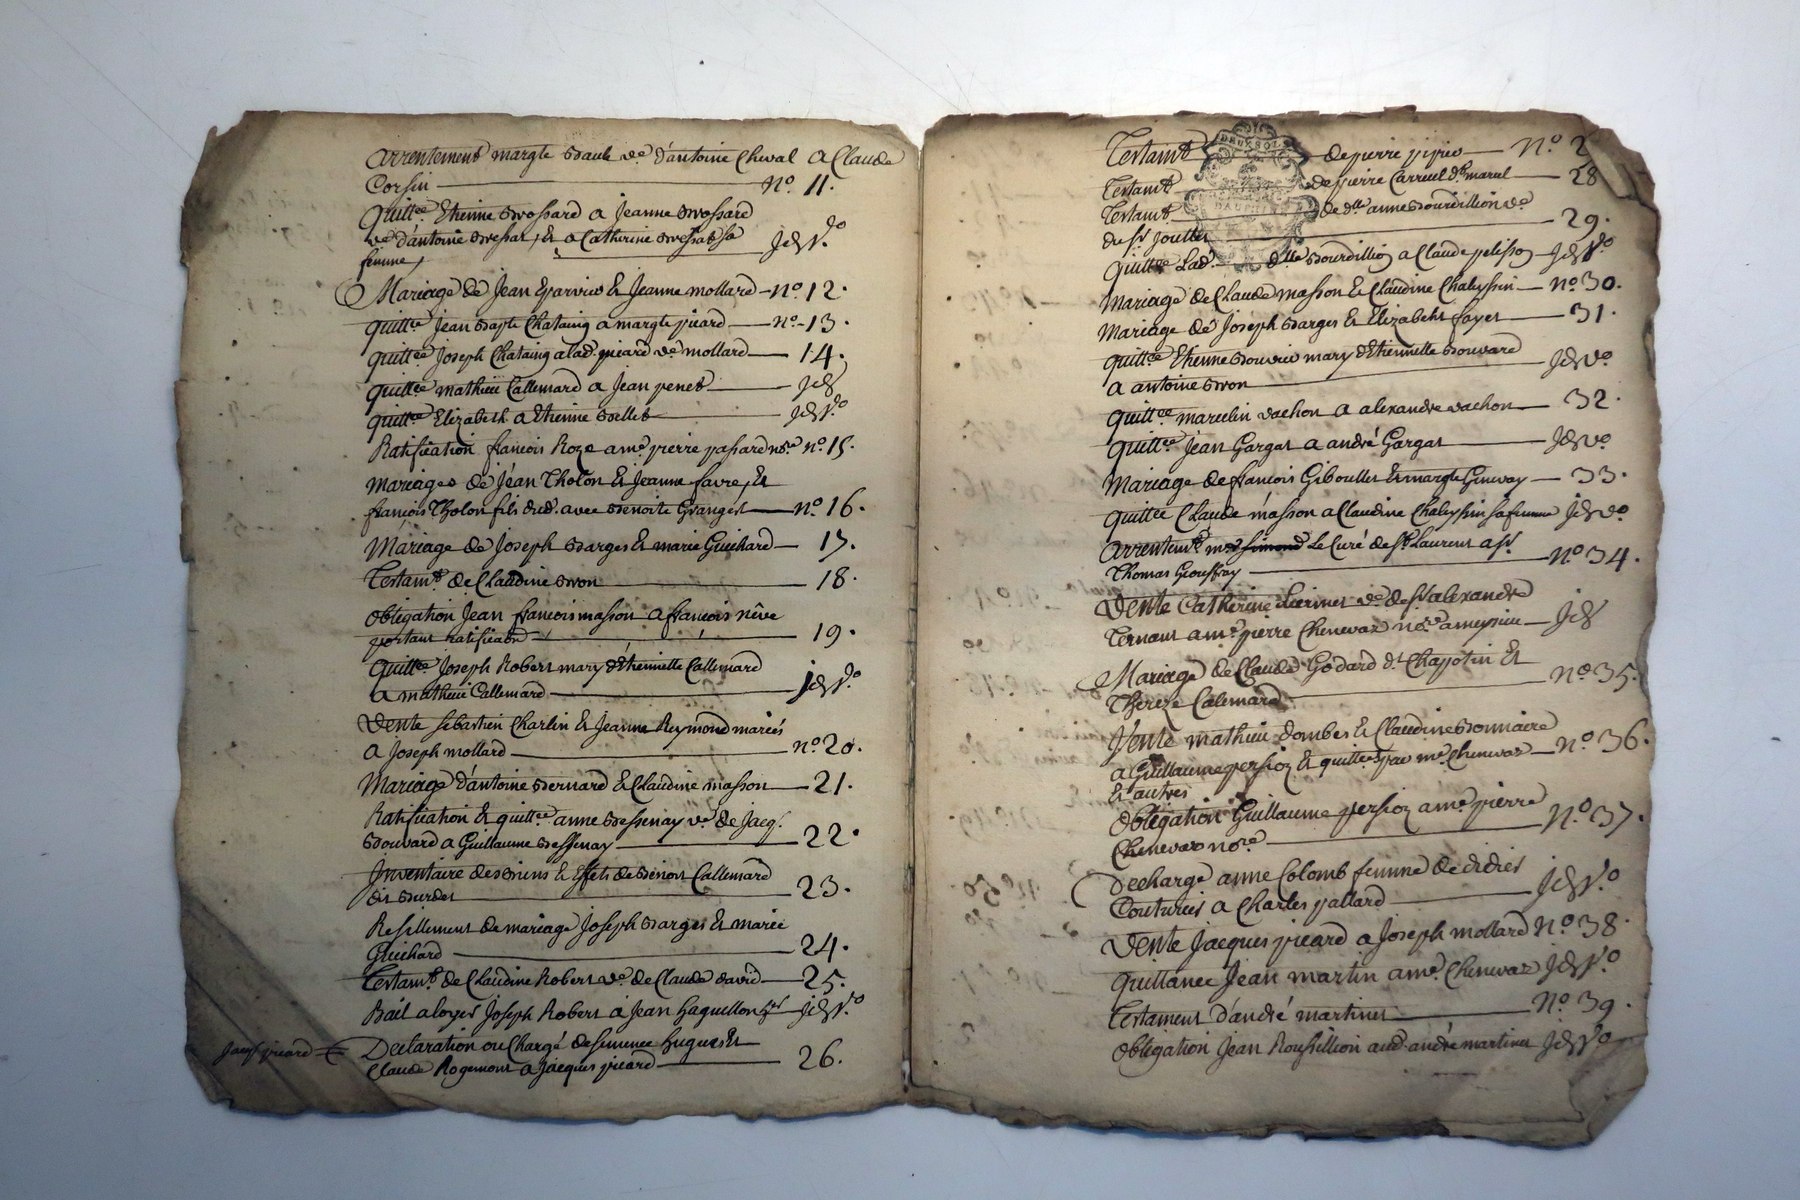 Arrentement margte ve d'antoine Cheval a Claude
Corsin No. 11.
Quittce Etienne Brossard a Jeanne Brossard
ve d'antoine & a Catherine sa jd Vo
femme
Mariage de Jean & Jeanne mollard no. 12.
quittce Jean Bapte Chataing a margte picard no. 13.
quittce Joseph Chataing a lad. picard ve mollard 14.
quittce mathieu Callemard a Jean penet jd
quittce Elizabeth a Etienne jd Vo
Ratification françois Roze a me pierre passard nore no. 15.
Mariages de Jean Tholon & Jeanne favre, &
françois Tholon fils dud. avec Benoite Granger no. 16.
Mariage de Joseph Barges & marie Guichard 17.
Testamt de Claudine Bron 18.
Obligation Jean françois masson a françois nêve
portant ratificaon 19.
Quittce Joseph Robert mary d'Etiennette Callemard
a mathieu Callemard jd Vo
Vente sebastien Charlin & Jeanne Reymond mariés
a Joseph mollard no. 20.
Mariage d'antoine Bernard & Claudine masson 21.
Ratification & quittce anne Bessenay ve de Jacq.
Bouvard a Guillaume Bessenay 22.
Inventaire des Biens & Effets de Benoit Callemard
dit Burdet 23.
Resillement de mariage Joseph Barges & marie
Guichard 24.
Testamt de Claudine Robert ve de Claude david 25.
Bail a loyer Joseph Robert à Jean haguellon jd Vo
picard
Declaration ou Chargé de Hugues &
Claude Rogemont a Jacques picard 26.
Testamt de pierre No. 2
Testamt de pierre Carreul dt marul 28
Testamt de dlle anne Bourdillion ve
du Sr 29.
quittce Lad. dlle Bourdillion a Claude pelisson jd Vo
Mariage de Claude masson & Claudine Chaleyssin no. 30.
Mariage de Joseph Barges & Elizabeth fayet 31.
quittce Etienne Bouvier mary d'Etiennette Bouvard
a antoine Bron jd Vo
quittce marcelin vachon a alexandre vachon 32.
quittce Jean Gargat a andré Gargat jd Vo
Mariage de françois Giboullet & margte Ginevay 33.
quittce Claude masson a Claudine Chaleyssin sa femme jd Vo
Arrentemt mre Le Curé de St Laurent a Sr.
Thomas Geoffray no. 34.
Vente Catherine ve de Sr alexandre
Ternant a me pierre Chenevaz nore jd
Mariage de Claude Godard dt Chapotin &
Thereze Calemard no. 35.
Vente mathieu dombes & Claudine Bonnaire
a Guillaume persioz & quittce par me Chenevaz no. 36.
& autres
Obligation Guillaume persioz a me pierre
Chenevaz nore No. 37.
Decharge anne Colomb femme de didier
Couturier a Charles pallard jd Vo
Vente Jacques picard a Joseph mollard No. 38.
Quittance Jean martin a me Chenevaz jd Vo
Testament d'andré martinet No. 39.
Obligation Jean Roussillion aud. andré martinet jd Vo